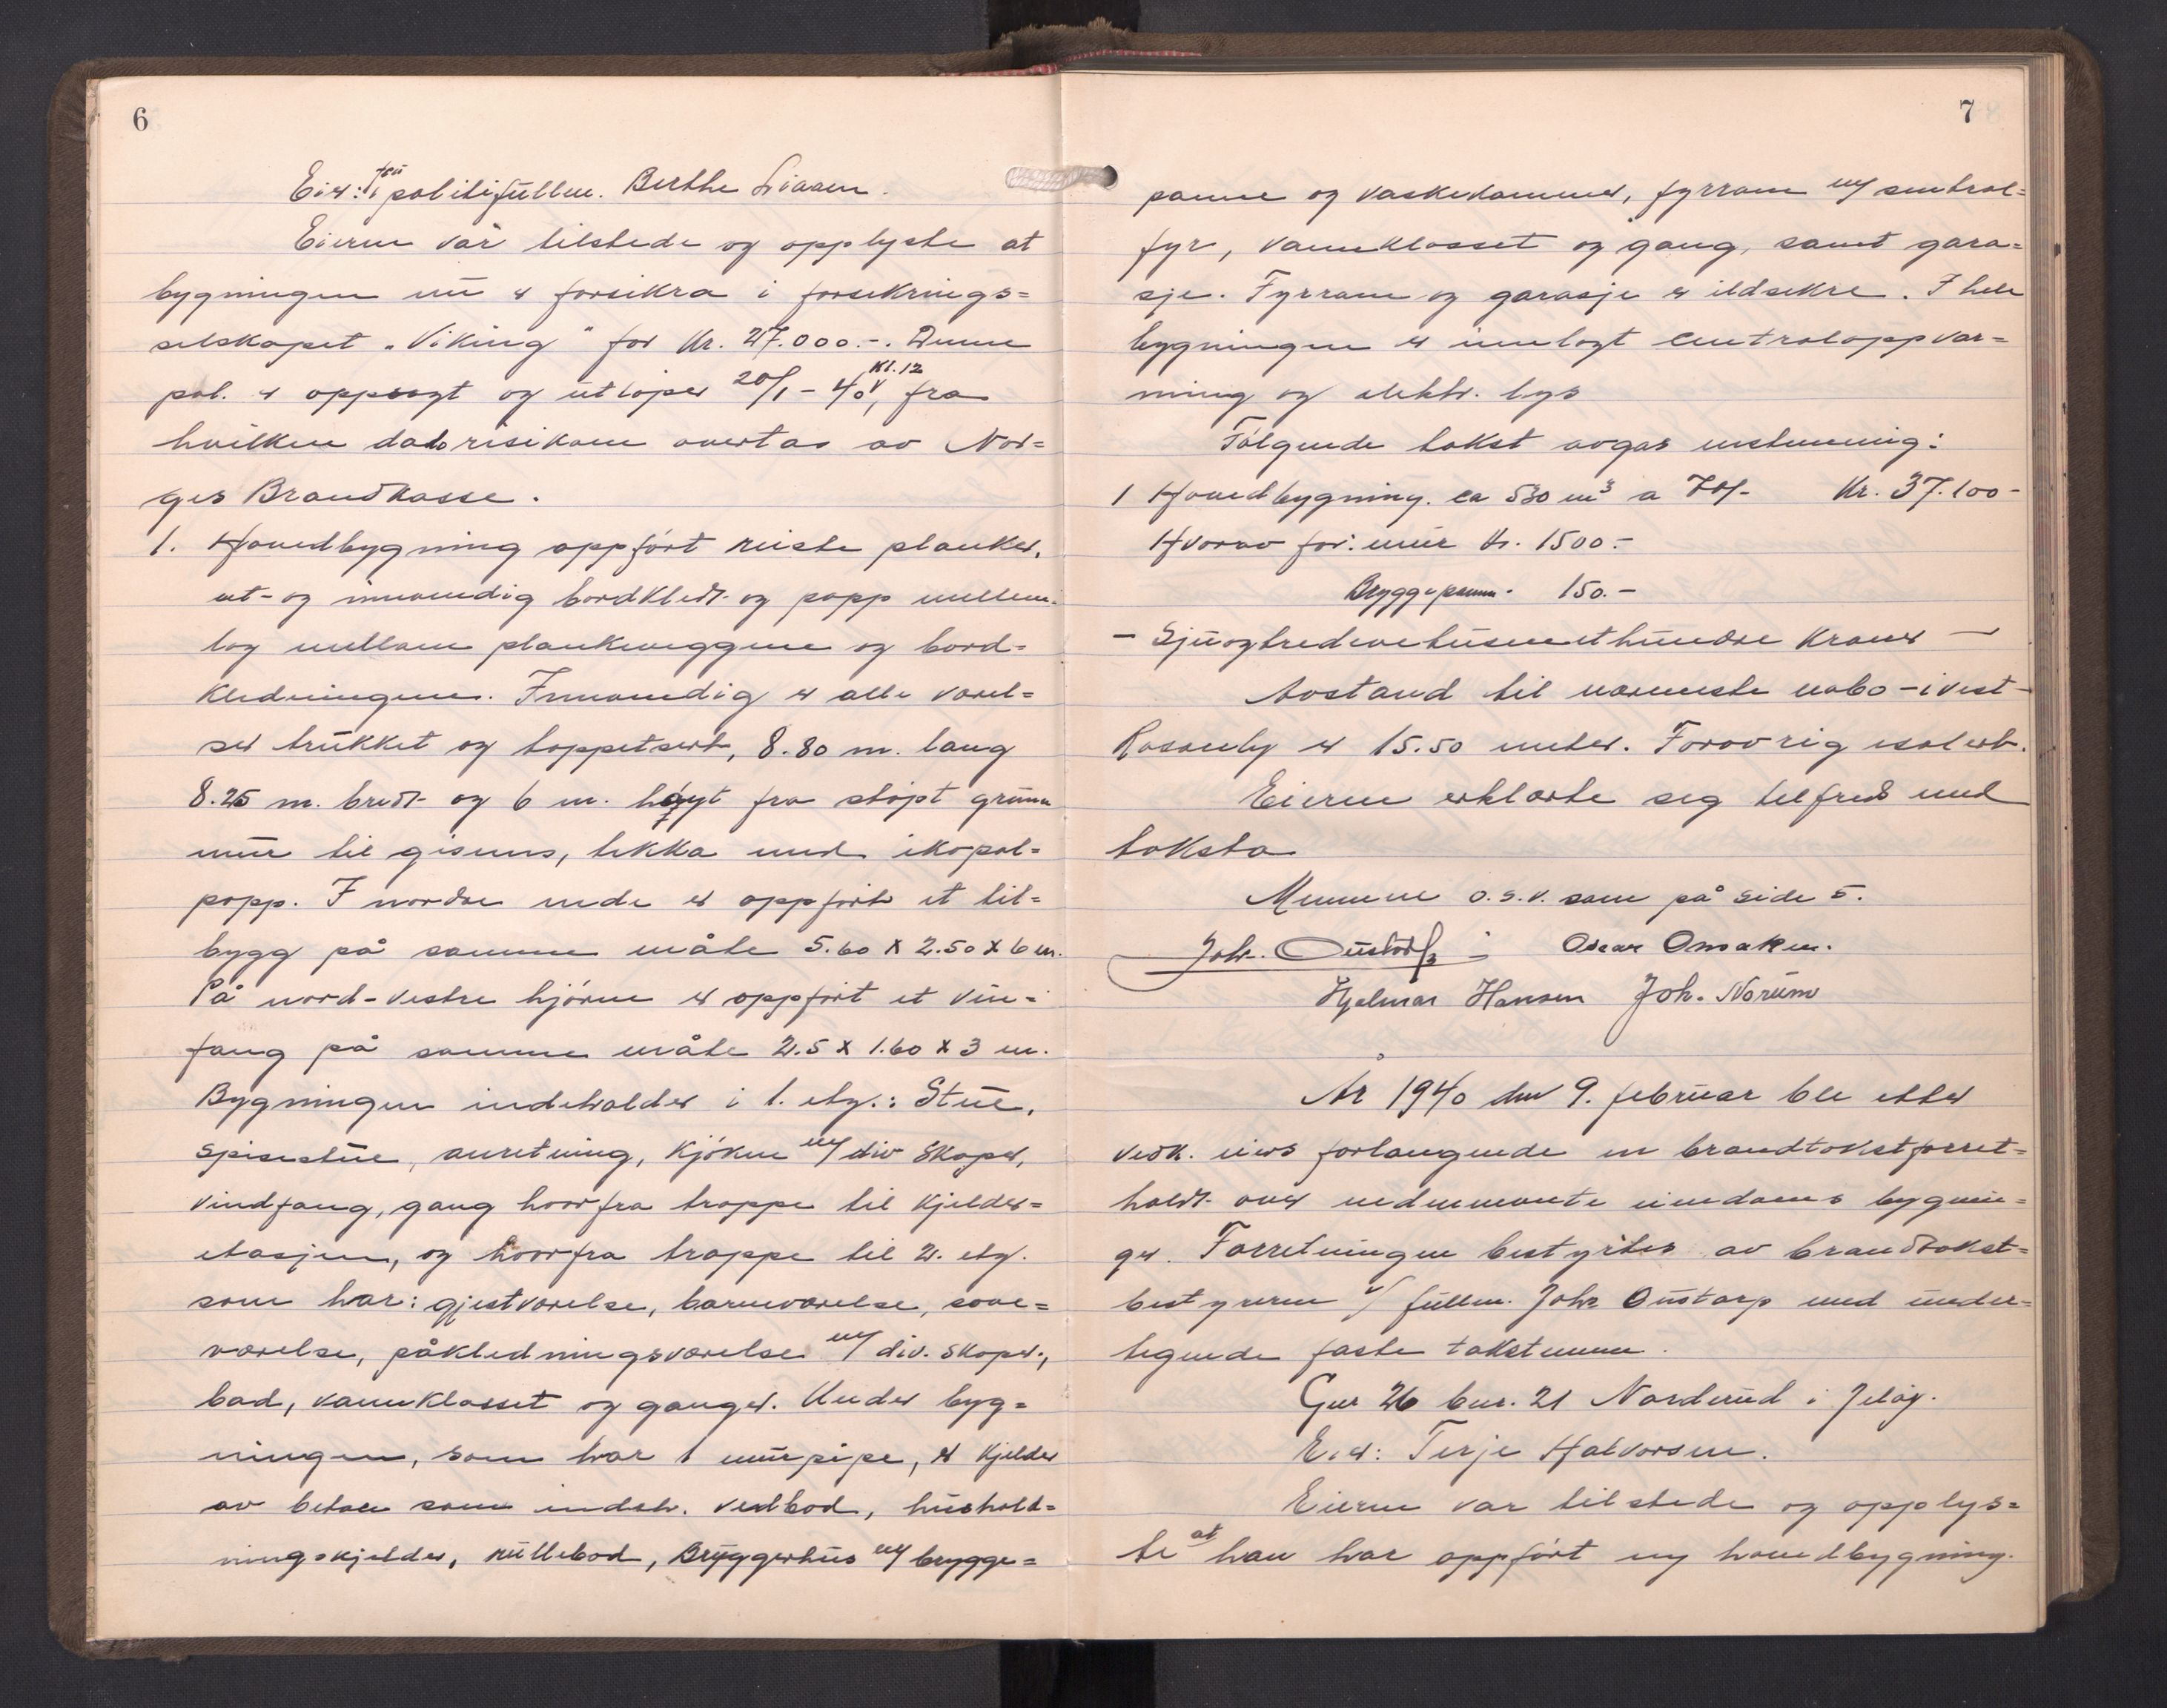 6
Eier: fru politifullm. Berthe Liaaen.
Eieren var tilstede og opplyste at
bygningen nu er forsikra i forsikrings=
selskapet "Viking" for Kr. 27.000.-. Denne
pol. er oppsagt og utløper 20/1-40, kl. 12 fra
hvilken dato risikoen overtas av Nor=
ges Brandkasse.
1. Hovedbygning oppført reiste planker,
ut- og innvendig bordkledt og papp mellem.
lag mellom plankeveggene og bord=
kledningen. Innvendig er alle værel=
ser trukket og tappetsert, 8.80 m. lang
8.25 m. bredt og 6 m. høyt fra støpt grunn
mur til gesims, tekka med ikopal=
papp. I nordre ende er oppført et til=
bygg på samme måte 5.60 x 2.50 x 6 m.
På nord-vestre hjørne er oppført et vin=
fang på samme måte 2.5 x 1.60 x 3 m.
Bygningen indeholder i 1. etg.: Stue,
spisestue, anretning, kjøken m/ div skaper,
vindfang, gang hvorfra trappe til kjelder=
etasjen, og hvorfra trappe til 2. etg.
som har: gjestværelse, barneværelse, sove=
værelse, påkledningsværelse m/ div. skaper,
bad, vannklosset og ganger. Under byg=
ningen, som har 1 murpipe, er kjelder
av betong som indeh. vedbod, hushold=
ningskjelder, rullebod, Bryggerhus m/ brygge=
7
panne og vaskekammer, fyrrom m/ sentral=
fyr, vannklosset og gang, samt gara=
sje. Fyrrom og garasje er ildsikre. I hele
bygningen er innlagt centraloppvar=
ming og elektr. lys
Følgende takst avgas enstemmig:
1 Hovedbygning. ca 530 m³ a 70/- Kr. 37.100-
Hvorav for: mur Kr. 1500.-
Bryggepann. 150.-
- Sjuogtredevetusenethundre kroner -
Avstand til nærmeste nabo - i vest -
Rosenly er 15.50 meter. Forøvrig isolert.
Eieren erklærte seg tilfreds med
taksta
Mennene o.s.v. som på side 5.
Joh. Oustorp Oscar Omsaken.
Hjalmar Hansen Joh. Norum
År 1940 den 9. februar ble etter
vedk. eiers forlangende en brandtakstforret=
holdt over nedennevnte eiendoms bygnin=
ger. Forretningen bestyrtes av brandtakst=
bestyreren v/ fullm. Joh Oustorp med under=
tegnede faste takstmenn.
Gnr 26 bnr. 21 Norderud i Jeløy.
Eier: Terje Halvorsen.
Eieren var tilstede og opplys=
te at han har oppført ny hovedbygning.